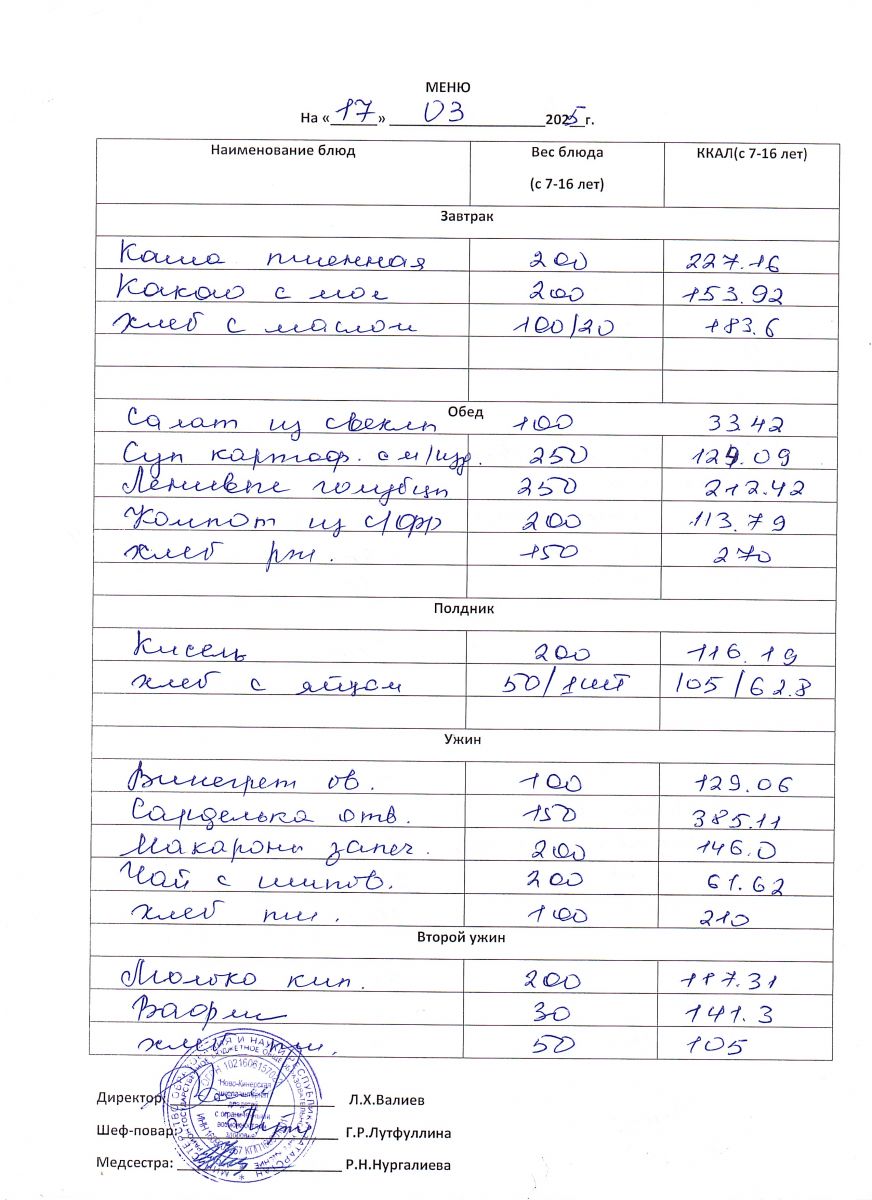 МЕНЮ
На «17» 03 2025 г.
Наименование блюд Вес блюда (с 7-16 лет) ККАЛ(с 7-16 лет)
Завтрак
Каша пшенная 200 227.16
Какао с мол 200 153.92
Хлеб с маслом 100/20 183.6
Обед
Салат из свеклы 100 33.42
Суп картоф. с м/изд. 250 124.09
Ленивые голубцы 250 212.42
Компот из с/фр 200 113.79
Хлеб рж. 150 270
Полдник
Кисель 200 116.19
Хлеб с яйцом 50/1шт 105/62.8
Ужин
Винегрет ов. 100 129.06
Сарделька отв. 150 385.11
Макароны запеч. 200 146.0
Чай с шипов. 200 61.62
Хлеб пш. 100 210
Второй ужин
Молоко кип. 200 117.31
Вафли 30 141.3
Хлеб пш. 50 105
Директор: Л.Х.Валиев
Шеф-повар: Г.Р.Лутфуллина
Медсестра: Р.Н.Нургалиева